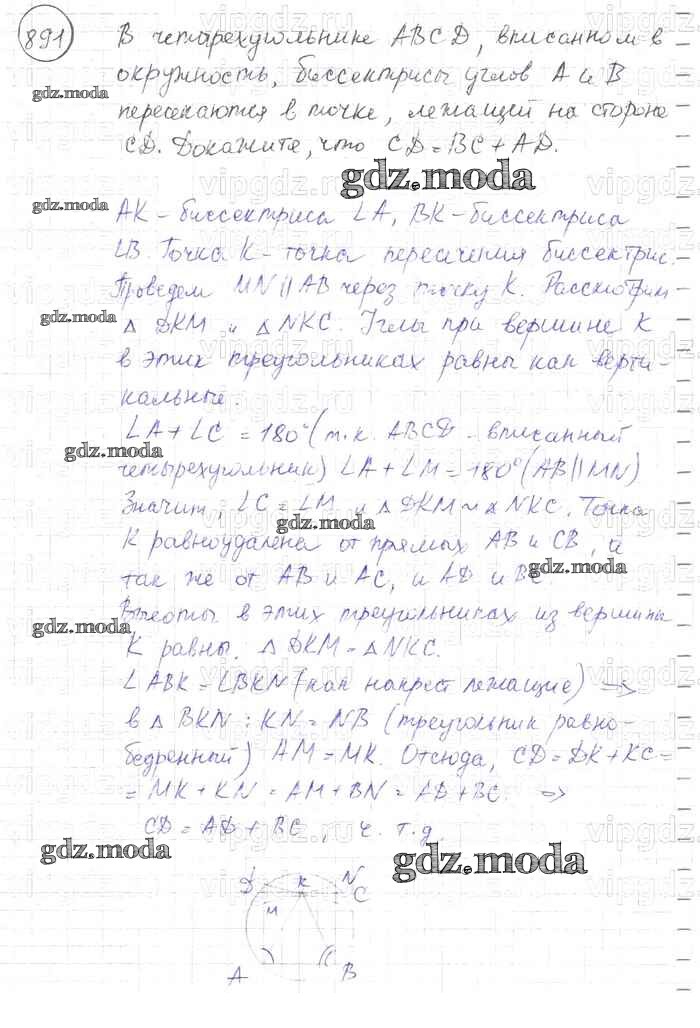 891
В четырехугольнике ABCD, вписанном в
окружность, биссектрисы углов A и B
gdz.moda
пересекаются в точке, лежащей на стороне
CD. Докажите, что CD = BC + AD.
gdz.moda
gdz.moda
AK - биссектриса ∠A, BK - биссектриса
∠B. Точка K - точка пересечения биссектрис.
Проведем MN || AB через точку K. Рассмотрим
gdz.moda
△ DKM и △ NKC. Углы при вершине K
в этих треугольниках равны как верти-
кальные.
∠A + ∠C = 180° (т.к. ABCD - вписанный
gdz.moda
четырехугольник) ∠A + ∠M = 180° (AB || MN)
Значит, ∠C = ∠M и △ DKM ~ △ NKC. Точка
gdz.moda
K равноудалена от прямых AB и CB, а
так же от AB и AC, и AD и BC
gdz.moda
Высоты в этих треугольниках из вершины
gdz.moda
K равны. △ DKM = △ NKC.
∠ABK = ∠BKN (как накрест лежащие) =>
в △ BKN: KN = NB (треугольник равно-
бедренный) AM = MK. Отсюда, CD = DK + KC =
= MK + KN = AM + BN = AD + BC. =>
CD = AD + BC, ч.т.д.
gdz.moda
gdz.moda
D K N
C
M
A B